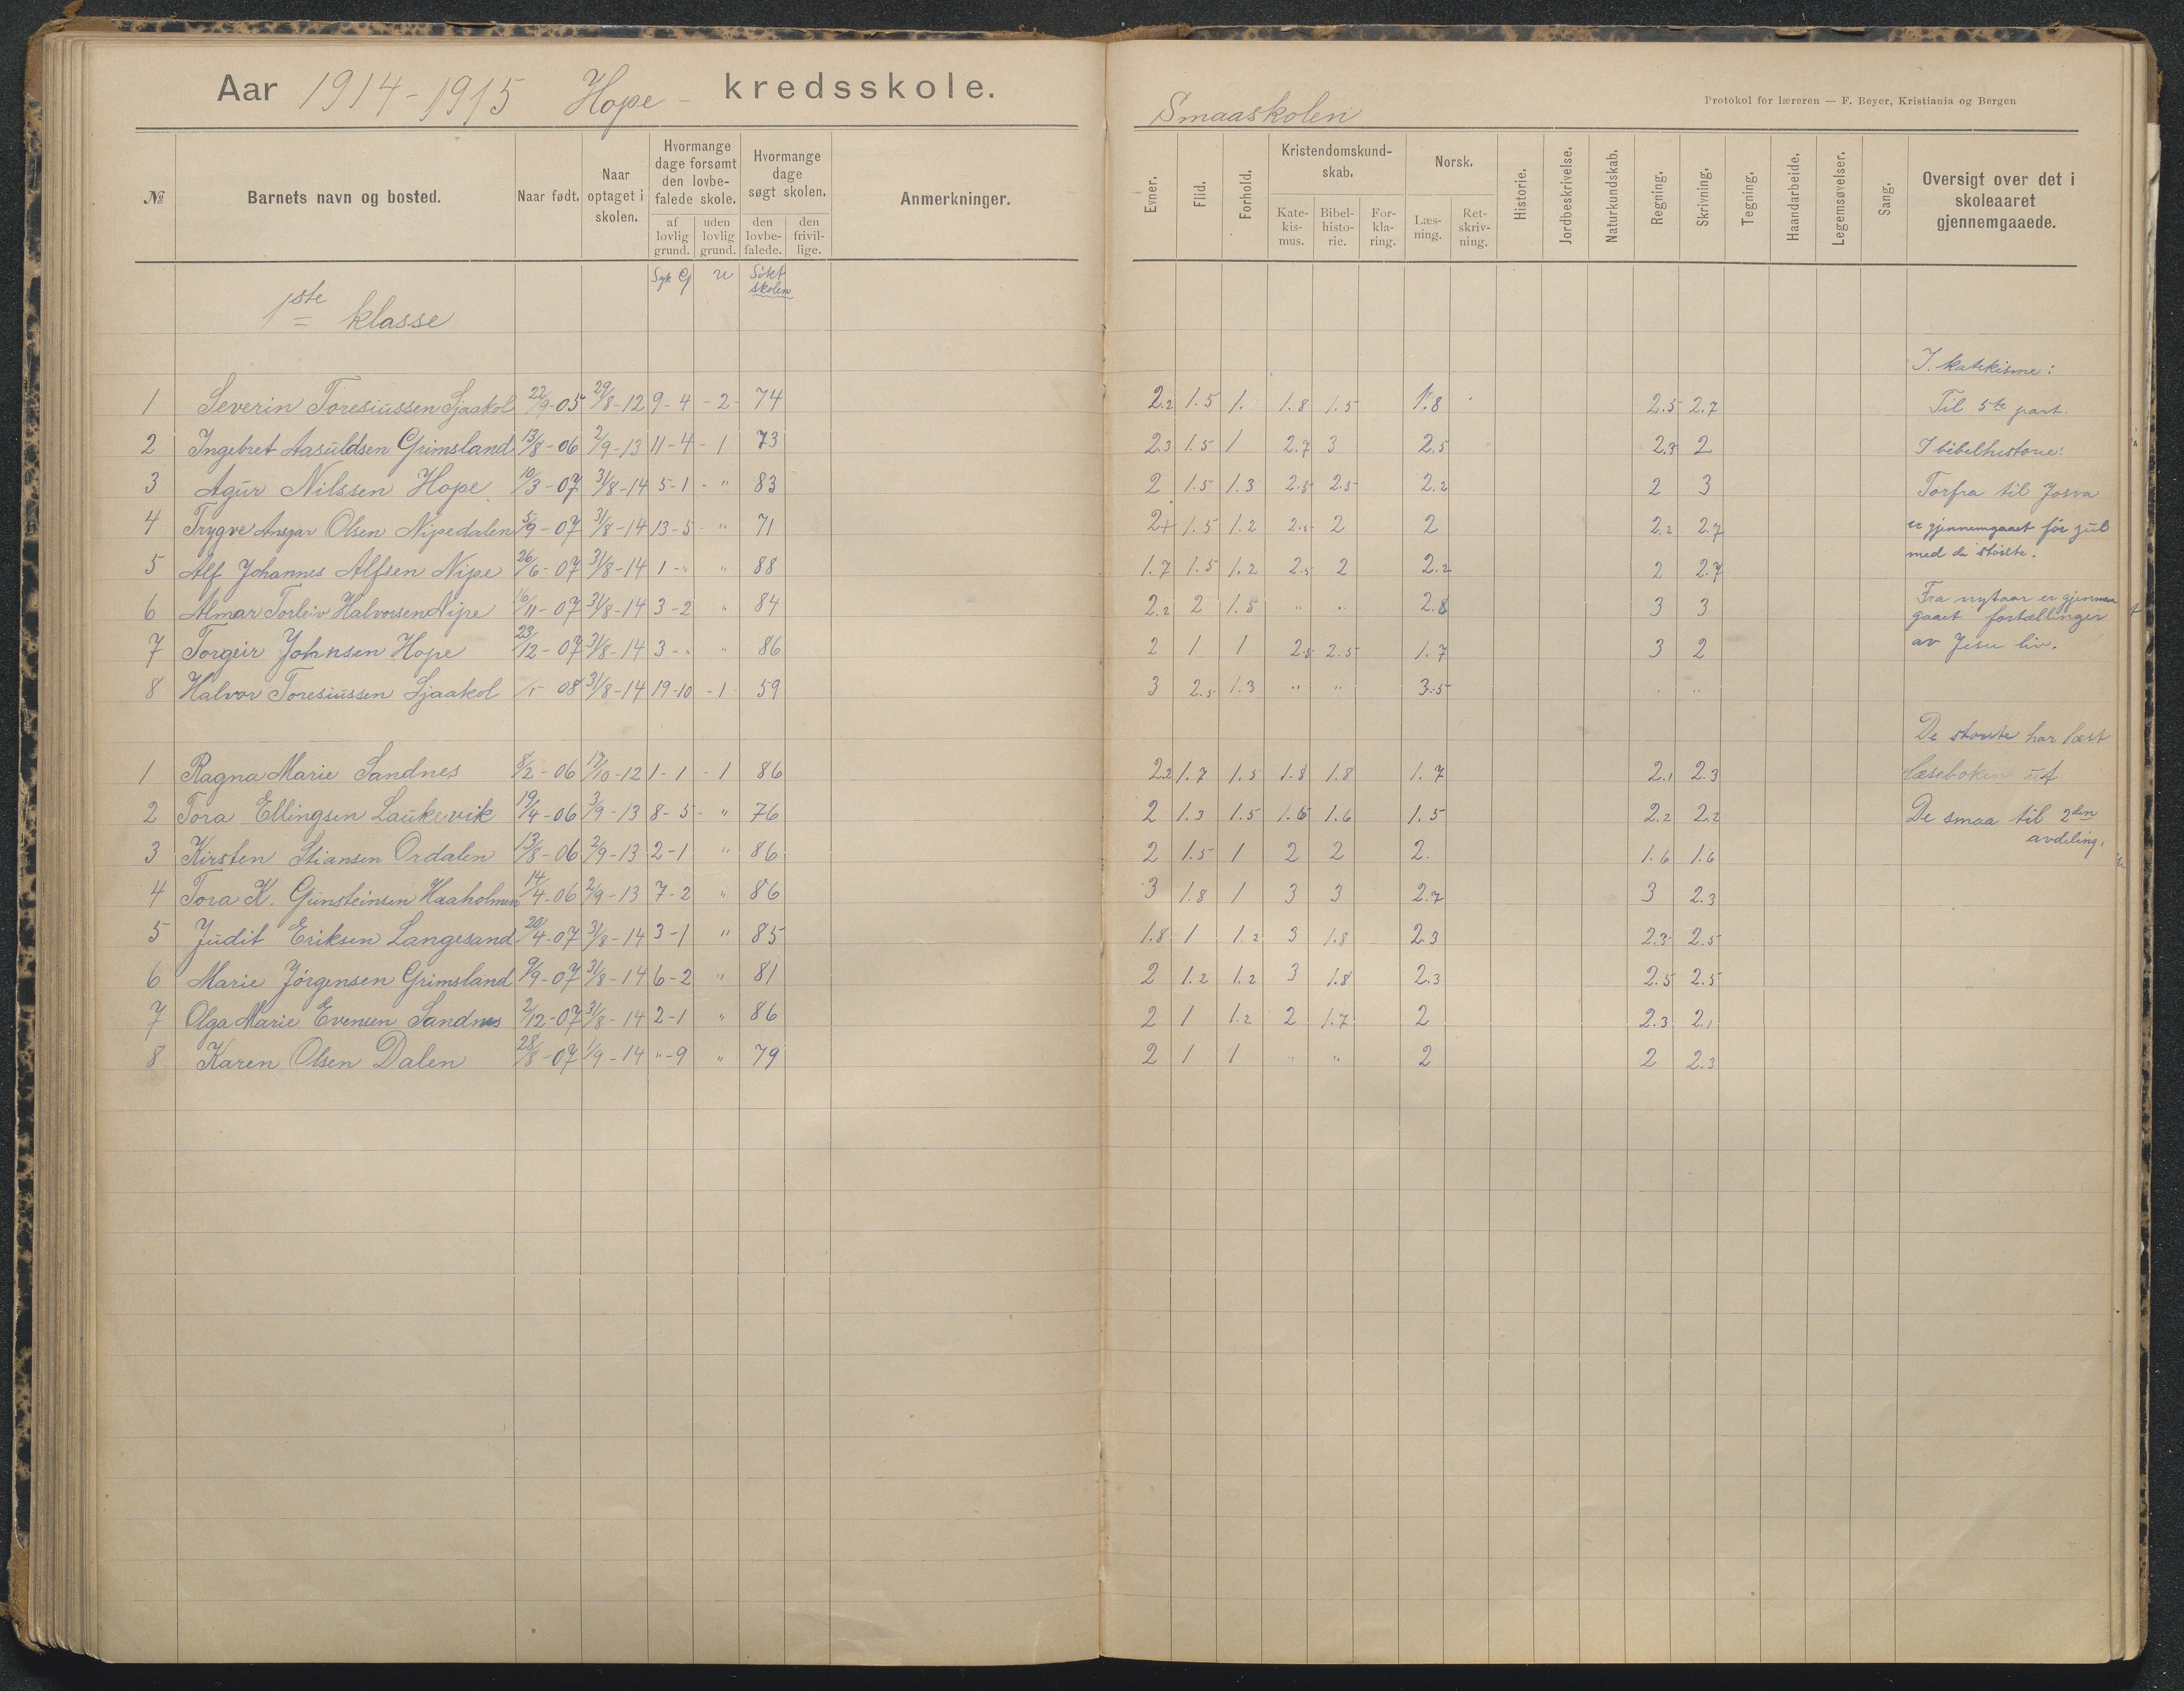 Aar 1914-1915 Hope - kredsskole.
Smaaskolen
Protokol for læreren — F. Beyer, Kristiania og Bergen
№ Barnets navn og bosted. Naar født. Naar optaget i skolen. Hvormange dage forsømt den lovbefalede skole. af lovlig grund. uden lovlig grund. Hvormange dage søgt skolen. den lovbefalede. den frivillige. Anmerkninger.
Evner. Flid. Forhold. Kristendomskundskab. Katekismus. Bibelhistorie. Forklaring. Norsk. Læsning. Retskrivning. Historie. Jordbeskrivelse. Naturkundskab. Regning. Skrivning. Tegning. Haandarbeide. Legemsøvelser. Sang. Oversigt over det i skoleaaret gjennemgaaede.
Syk G u Søkt skolen
1ste klasse
1 Severin Toresiussen Sjaakol 22/9-05 29/8-12 9-4 -2- 74 2.2 1.5 1. 1.8 1.5 1.8 2.5 2.7
2 Ingebret Aasuldsen Grimsland 13/8-06 2/9-13 11-4 -1 73 2.3 1.5 1 2.7 3 2.5 2.3 2
3 Agur Nilssen Hope 10/3-07 31/8-14 5-1 -" 83 2 1.5 1.3 2.5 2.5 2.2 2 3
4 Trygve Ansgar Olsen Nipedalen 5/9-07 31/8-14 13-5 -" 71 2+ 1.5 1.2 2.5 2 2 2.2 2.7
5 Alf Johannes Alfsen Nipe 26/6-07 31/8-14 1-" " 88 1.7 1.5 1.2 2.5 2 2.2 2 2.7
6 Almar Torleiv Halvorsen Nipe 16/11-07 31/8-14 3-2 " 84 2.2 2 1.5 " " 2.8 3 3
7 Torgeir Johnsen Hope 23/12-07 31/8-14 3-" " 86 2 1 1 2.5 2.5 1.7 3 2
8 Halvor Toresiussen Sjaakol 08 31/8-14 19-10 -1 59 3 2.5 1.3 " " 3.5 " "
1 Ragna Marie Sandnes 8/2-06 17/10-12 1-1 -1 86 2.2 1.7 1.5 1.8 1.8 1.7 2.1 2.3
2 Tora Ellingsen Laukevik 19/4-06 3/9-13 8-5 -" 76 2 1.3 1.5 1.6 1.6 1.5 2.2 2.2
3 Kirsten Stiansen Ordalen 13/8-06 2/9-13 2-1 " 86 2 1.5 1 2 2 2. 1.6 1.6
4 Tora K. Gunsteinsen Haaholmen 14/4-06 2/9-13 7-2 " 86 3 1.8 1 3 3 2.7 3 2.3
5 Judit Eriksen Langesand 20/4-07 31/8-14 3-1 " 85 1.8 1 1.2 3 1.8 2.3 2.3 2.5
6 Marie Jørgensen Grimsland 9/9-07 31/8-14 6-2 " 81 2 1.2 1.2 3 1.8 2.3 2.5 2.5
7 Olga Marie Evensen Sandnes 2/12-07 31/8-14 2-1 " 86 2 1 1.2 2 1.7 2 2.3 2.1
8 Karen Olsen Dalen 28/8-07 1/9-14 "-9 " 79 2 1 1 " " 2 2 2.3
I. katekisme:
Til 5te part.
I bibelhistorie:
Forfra til Josva
er gjennemgaaet før jul
med de største.
Fra nytaar er gjennem
gaaet fortællinger
av Jesu liv.
De største har læst
læseboken ut
De smaa til 2den
avdeling.